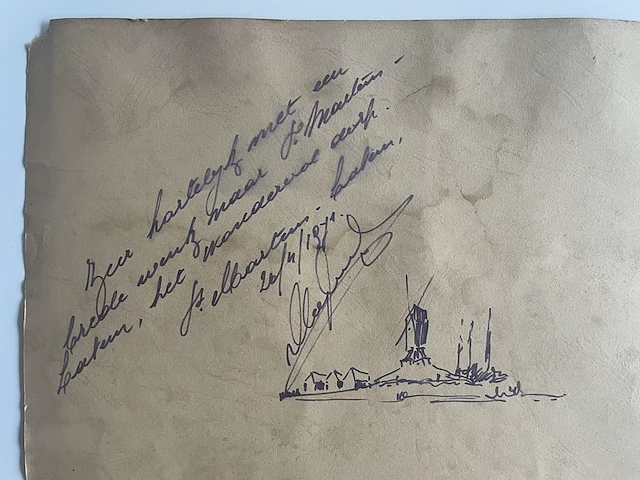 Zeer hartelijk met een
breede wenk naar St Martens-
Latem, het wondervol dorp.
St. Martens-Latem,